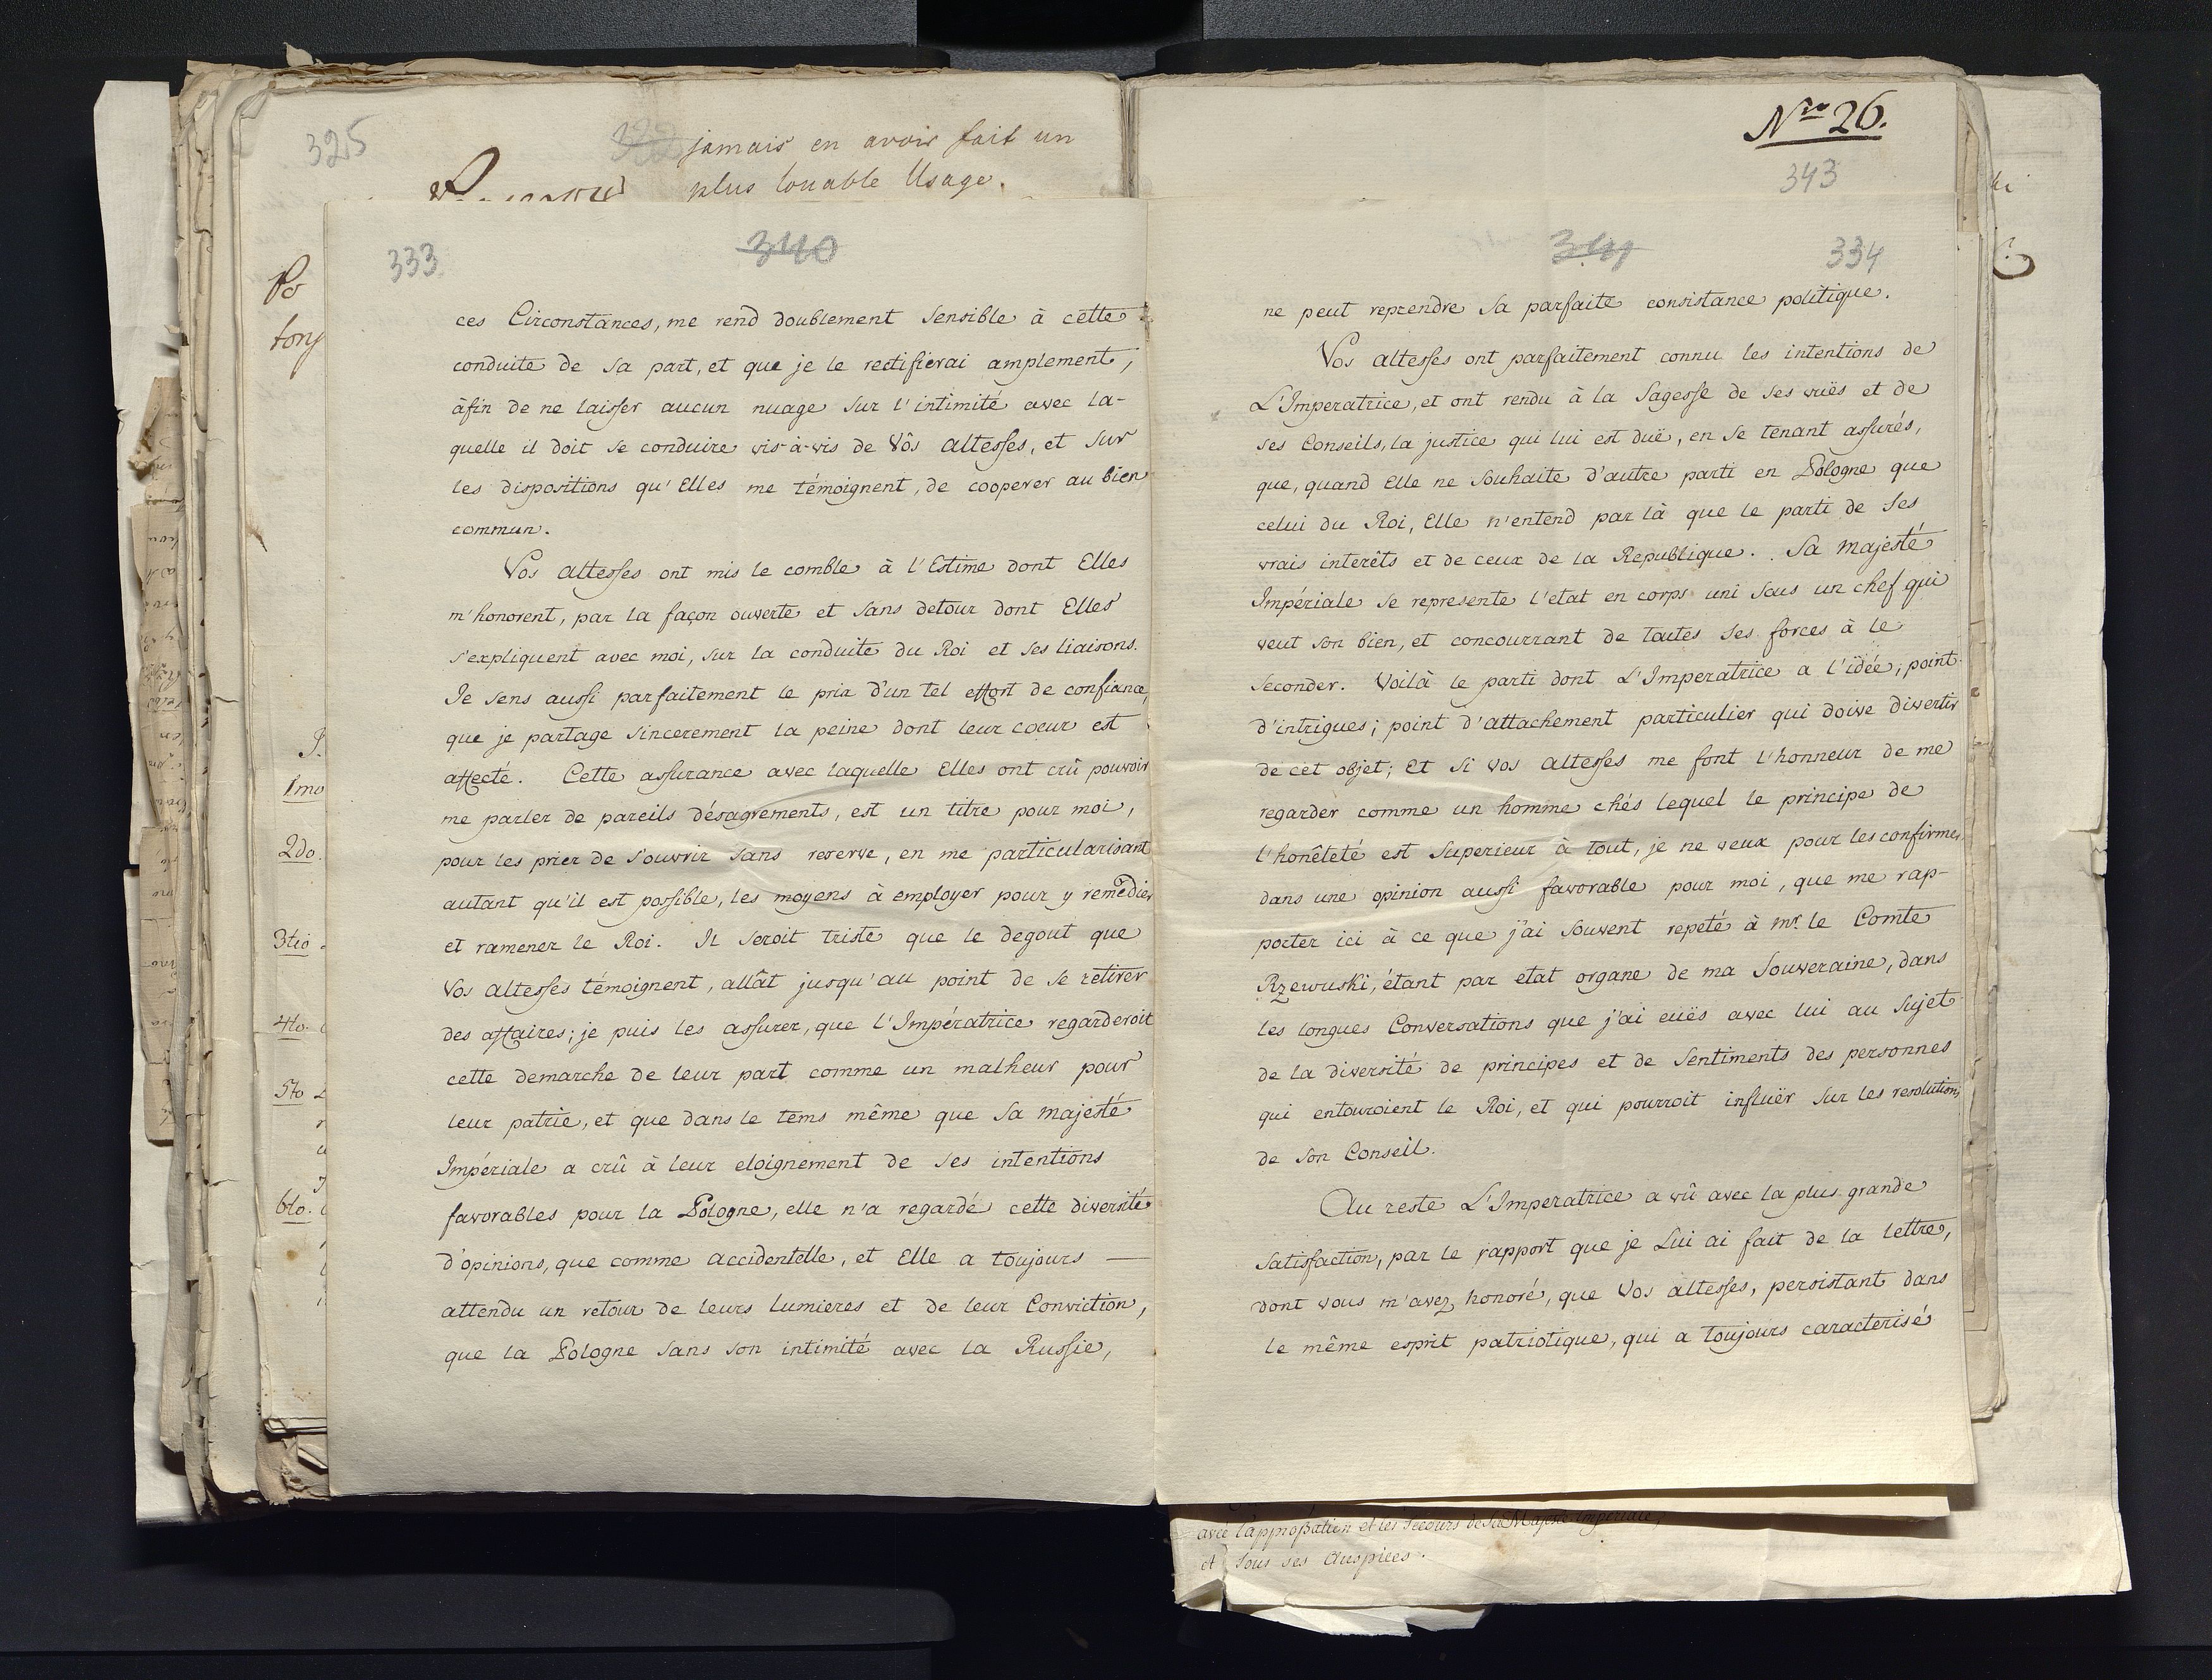 325
jamais en avoir fait un
plus louable Usage.
Po
tory
1mo
2do.
3tio
4to.
5to
6to.
333
340
ces Circonstances, me rend doublement sensible à cette
conduite de sa part, et que je le rectifierai amplement,
àfin de ne laisser aucun nuage sur l'intimité avec la-
quelle il doit se conduire vis-à-vis de Vôs altesses, et sur
les dispositions qu'Elles me témoignent, de cooperer au bien
commun.
Vos altesses ont mis le comble à l'Estime dont Elles
m'honorent, par la façon ouverte et sans detour dont Elles
s'expliquent avec moi, sur la conduite du Roi et ses liaisons.
Je sens aussi parfaitement le prix d'un tel effort de confiance,
que je partage sincerement la peine dont leur coeur est
affecté. Cette assurance avec laquelle Elles ont crû pouvoir
me parler de pareils désagrements, est un titre pour moi,
pour les prier de s'ouvrir sans reserve, en me particularisant
autant qu'il est possible, les moyens à employer pour y remédier
et ramener le Roi. Il seroit triste que le degout que
Vos altesses témoignent, allât jusqu'au point de se retirer
des affaires; je puis les assurer, que l'Impératrice regarderoit
cette demarche de leur part comme un malheur pour
leur patrie, et que dans le tems même que sa majesté
Impériale a crû à leur eloignement de ses intentions
favorables pour la Pologne, elle n'a regardé cette diversité
d'opinions, que comme accidentelle, et Elle a toujours —
attendu un retour de leurs lumieres et de leur Conviction,
que la Pologne sans son intimité avec la Russie,
Nro 26.
343
341
334
ne peut reprendre sa parfaite consistance politique.
Vos altesses ont parfaitement connu les intentions de
L'Imperatrice, et ont rendu à la sagesse de ses vuës et de
ses Conseils, la justice qui lui est duë, en se tenant assurés,
que, quand Elle ne souhaite d'autre parti en Pologne que
celui du Roi, Elle n'entend par là que le parti de ses
vrais interêts et de ceux de la Republique. Sa majesté
Impériale se represente l'etat en corps uni sous un chef qui
veut son bien, et concourrant de toutes ses forces à le
seconder. Voilà le parti dont L'Imperatrice a l'idée; point
d'intrigues; point d'attachement particulier qui doive divertir
de cet objet; et si vos altesses me font l'honneur de me
regarder comme un homme chés lequel le principe de
l'honêteté est superieur à tout, je ne veux pour les confirmer
dans une opinion aussi favorable pour moi, que me rap-
porter ici à ce que j'ai souvent repeté à mr. le Comte
Rzewuski, étant par etat organe de ma Souveraine, dans
les longues Conversations que j'ai euës avec lui au sujet
de la diversité de principes et de sentiments des personnes
qui entouroient le Roi, et qui pourroit influër sur les resolutions
de son Conseil.
Au reste L'Imperatrice a vû avec la plus grande
satisfaction, par le rapport que je Lui ai fait de la lettre,
dont vous m'avez honoré, que Vos altesses, persistant dans
le même esprit patriotique, qui a toujours caracterisé
avec l'approbation et les Secours de Sa Majesté Imperiale,
et sous ses Auspices.